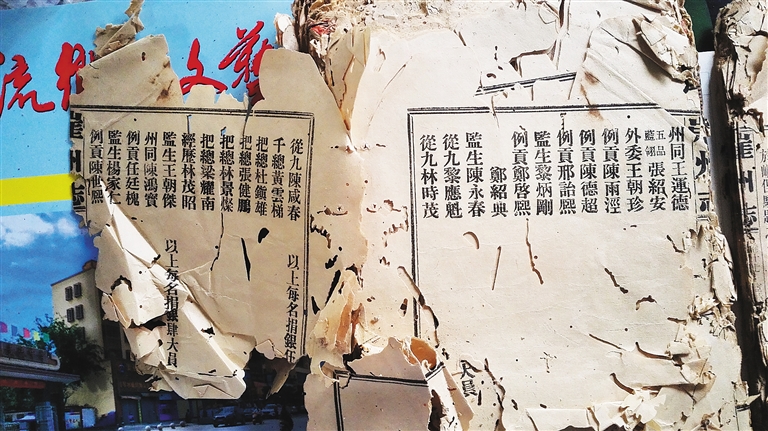 州同王運德
五品藍翎張紹安
外委王朝珍
例貢陳雨涇
例貢陳德超
例貢邢詒熙
監生黎炳剛
例貢鄭啓熙
鄭紹興
監生陳永春
從九黎應魁
從九林時茂
員
從九陳咸春
千總黃雲梯
以上每名捐銀伍
把總杜鎮雄
把總張健鵬
把總林景燦
把總梁耀南
經歷林茂昭
監生王朝傑
以上每名捐銀肆大員
州同陳鴻賓
例貢任廷槐
監生楊家
例貢陳世熙
崖州志
州志
崖州志
文藝